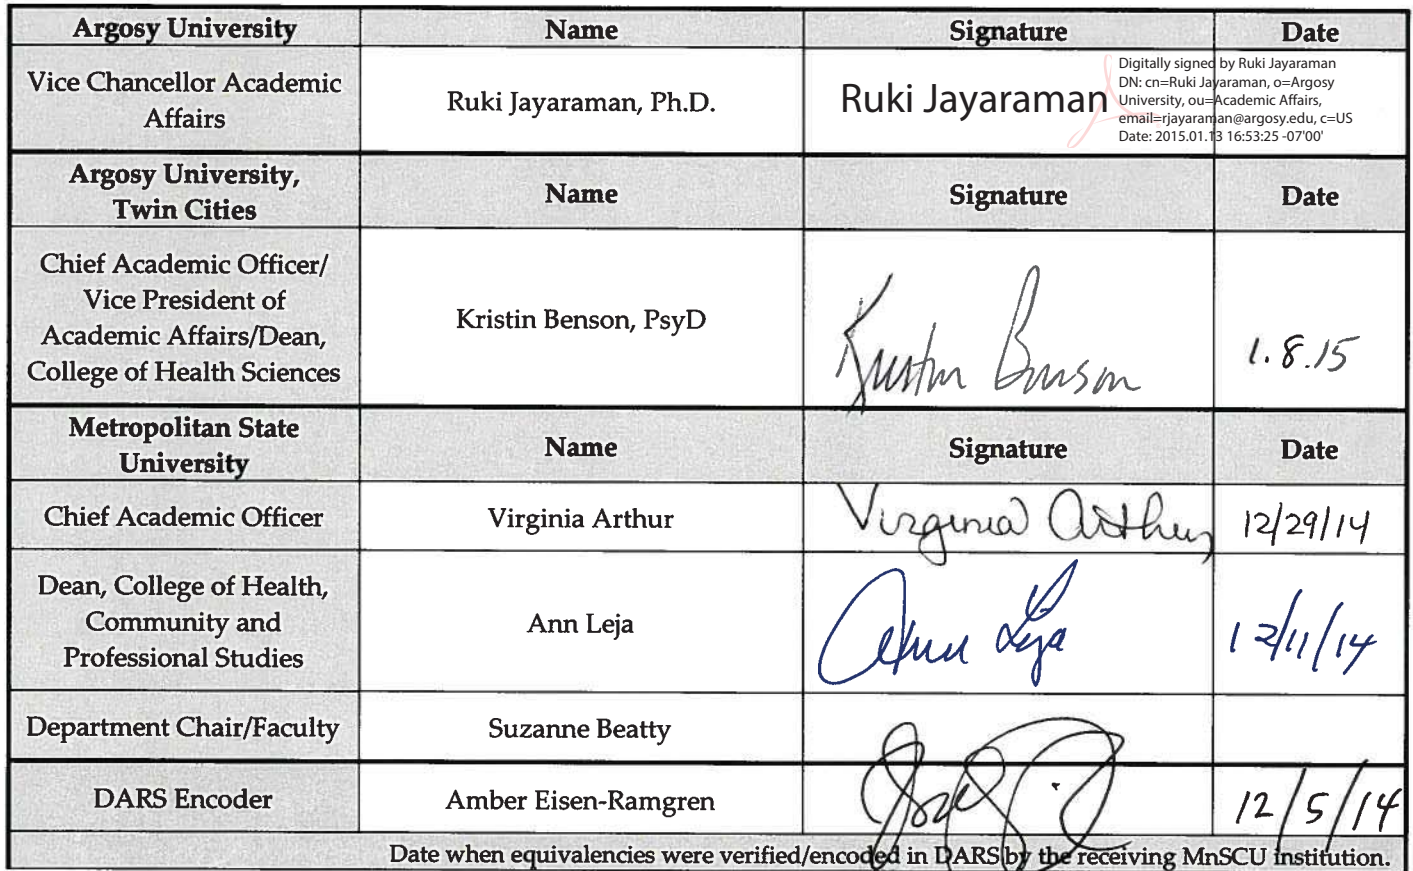 Argosy University Name Signature Date
Vice Chancellor Academic
Affairs
Ruki Jayaraman, Ph.D.
Ruki Jayaraman
Digitally signed by Ruki Jayaraman
DN: cn=Ruki Jayaraman, o=Argosy
University, ou=Academic Affairs,
email=rjayaraman@argosy.edu, c=US
Date: 2015.01.13 16:53:25 -07'00'
Argosy University,
Twin Cities
Name Signature Date
Chief Academic Officer/
Vice President of
Academic Affairs/Dean,
College of Health Sciences
Kristin Benson, PsyD
Kristin Benson
1.8.15
Metropolitan State
University
Name Signature Date
Chief Academic Officer
Virginia Arthur
Virginia Arthur
12/29/14
Dean, College of Health,
Community and
Professional Studies
Ann Leja
Ann Leja
12/11/14
Department Chair/Faculty
Suzanne Beatty
DARS Encoder
Amber Eisen-Ramgren
12/5/14
Date when equivalencies were verified/encoded in DARS by the receiving MnSCU institution.